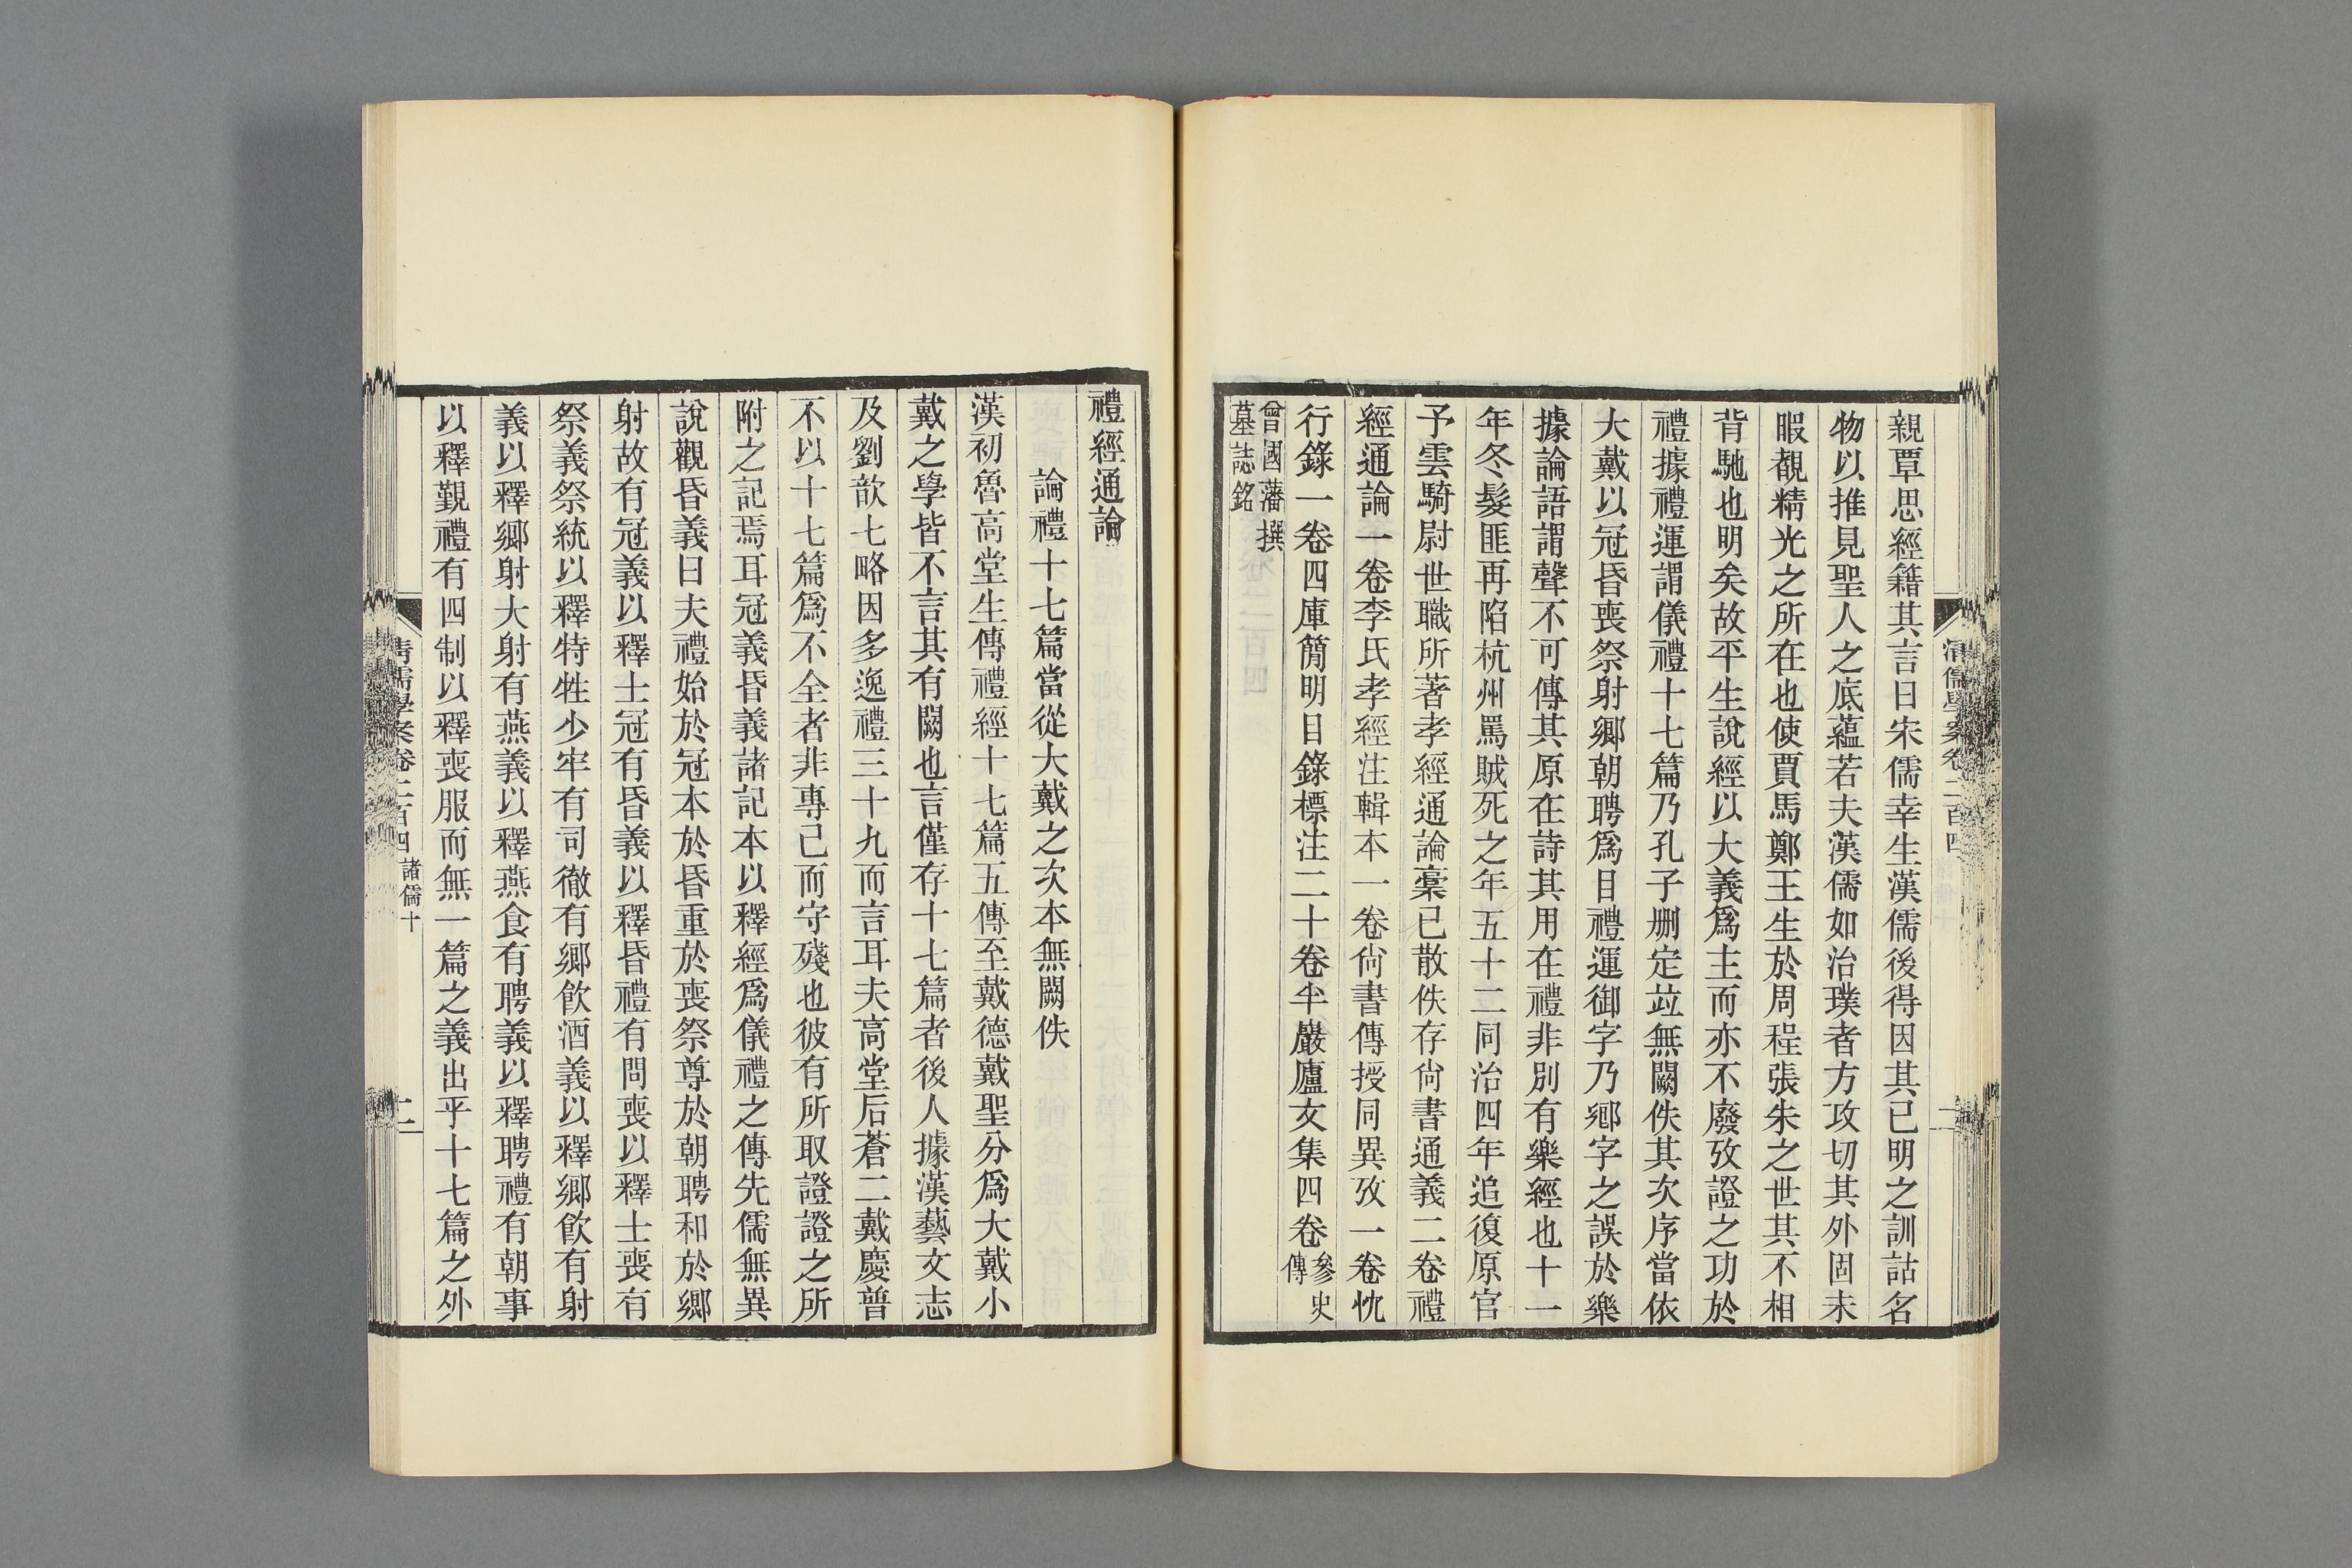 親覃思經籍其言曰宋儒幸生漢儒後得因其已明之訓詁名
物以推見聖人之底蘊若夫漢儒如治璞者方攻切其外固未
暇覩精光之所在也使賈馬鄭王生於周程張朱之世其不相
背馳也明矣故平生說經以大義爲主而亦不廢攷證之功於
禮據禮運謂儀禮十七篇乃孔子删定竝無闕佚其次序當依
大戴以冠昏喪祭射鄉朝聘爲目禮運御字乃鄉字之誤於樂
據論語謂聲不可傳其原在詩其用在禮非別有樂經也十一
年冬髮匪再陷杭州罵賊死之年五十二同治四年追復原官
予雲騎尉世職所著孝經通論稾已散佚存尙書通義二卷禮
經通論一卷李氏孝經注輯本一卷尙書傳授同異攷一卷忱
行錄一卷四庫簡明目錄標注二十卷半巖廬文集四卷參史傳
曾國藩撰墓誌銘
清儒學案卷二百四 諸儒十 二
禮經通論
論禮十七篇當從大戴之次本無闕佚
漢初魯高堂生傳禮經十七篇五傳至戴德戴聖分爲大戴小
戴之學皆不言其有闕也言僅存十七篇者後人據漢藝文志
及劉歆七略因多逸禮三十九而言耳夫高堂后蒼二戴慶普
不以十七篇爲不全者非專己而守殘也彼有所取證證之所
附之記焉耳冠義昏義諸記本以釋經爲儀禮之傳先儒無異
說觀昏義曰夫禮始於冠本於昏重於喪祭尊於朝聘和於鄉
射故有冠義以釋士冠有昏義以釋昏禮有問喪以釋士喪有
祭義祭統以釋特牲少牢有司徹有鄉飮酒義以釋鄉飮有射
義以釋鄉射大射有燕義以釋燕食有聘義以釋聘禮有朝事
以釋覲禮有四制以釋喪服而無一篇之義出乎十七篇之外
清儒學案卷二百四 諸儒十 二